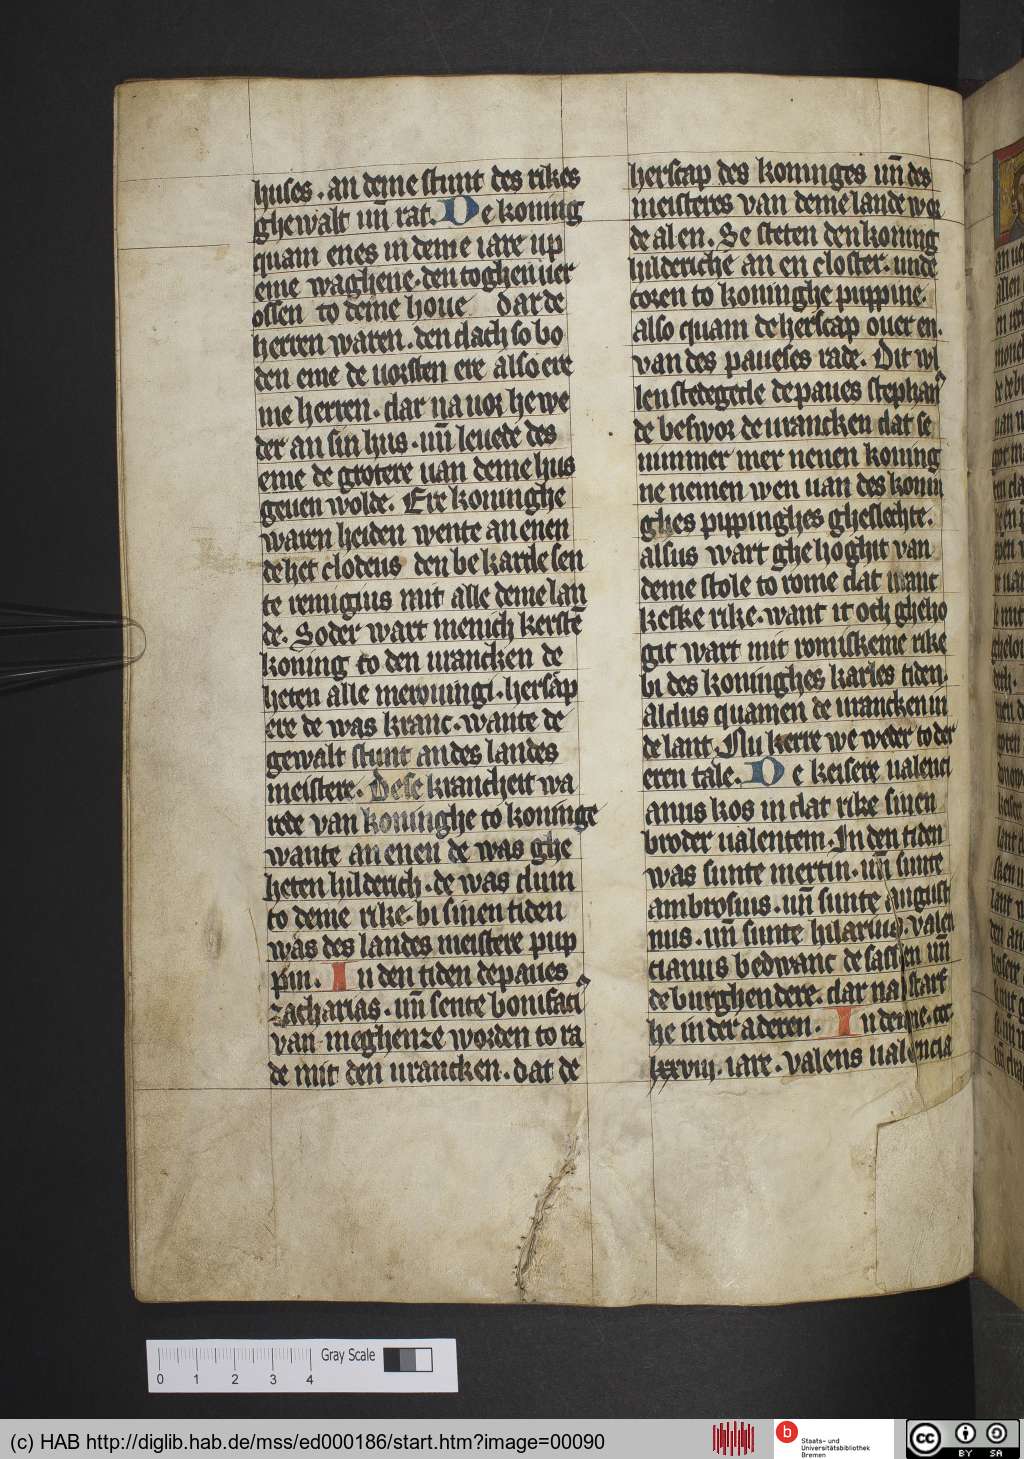 huses . an deme stunt des rikes
ghewalt un̄ rat. De koning
quam enes in deme iare up
eme waghene . den toghen uer
ossen to deme houe dar de
herren waren . den dach so bo
den eme de uorsten ere also ere
me herren . dar na uor he we
der an sin hus . un̄ leuede des
eme de grotere uan deme hus
geuen wolde . Ere koninghe
waren heiden wente an enen
de het clodeus den bekarde sen
te remigius mit alle deme lan
de . Soder wart menich kerstē
koning to den urancken de
heten alle merouingi . herscap
ere de was kranc . wante de
gewalt stunt an des landes
meistere . Dese krancheit wa
rede van koninghe to koninge
wante an enen de was ghe
heten hilderich . de was dum
to deme rike . bi sinen tiden
was des landes meistere pup
pin . In den tiden de paues
zacharias . un̄ sente bonifaci⁹
van meghenze worden to ra
de mit den urancken . dat de
herscap des koninges un̄ des
meisteres van deme lande wor
de al en . Se steten den koning
hilderiche an en closter . unde
coren to koninghe puppine .
also quam de herscap ouer en .
van des paueses rade . Dit wi
len stedegede de paues stephan⁹
de beswor de urancken dat se
nummer mer nenen koning
ne nemen wen uan des konin
ghes pippinghes gheslechte .
alsus wart ghehoghit van
deme stole to rome dat uranc
keske rike . want it och gheho
git wart mit romiskeme rike
bi des koninghes karles tiden .
Aldus quamen de urancken in
de lant . Nu kerre we weder to der
eren tale . De keisere ualenci
anus kos in dat rike sinen
broder ualentem . In den tiden
was sunte mertin . un̄ sunte
ambrosius . un̄ sunte august
nus . un̄ sunte hilarius . valen
cianus bedwanc de sassen un̄
de burghendere . dar na starf
he in der aderen . In deme . ccc .
lxxviii . iare . valens ualencia
Gray Scale
0 1 2 3 4
(c) HAB http://diglib.hab.de/mss/ed000186/start.htm?image=00090
b
Staats- und
Universitätsbibliothek
Bremen
cc
BY SA